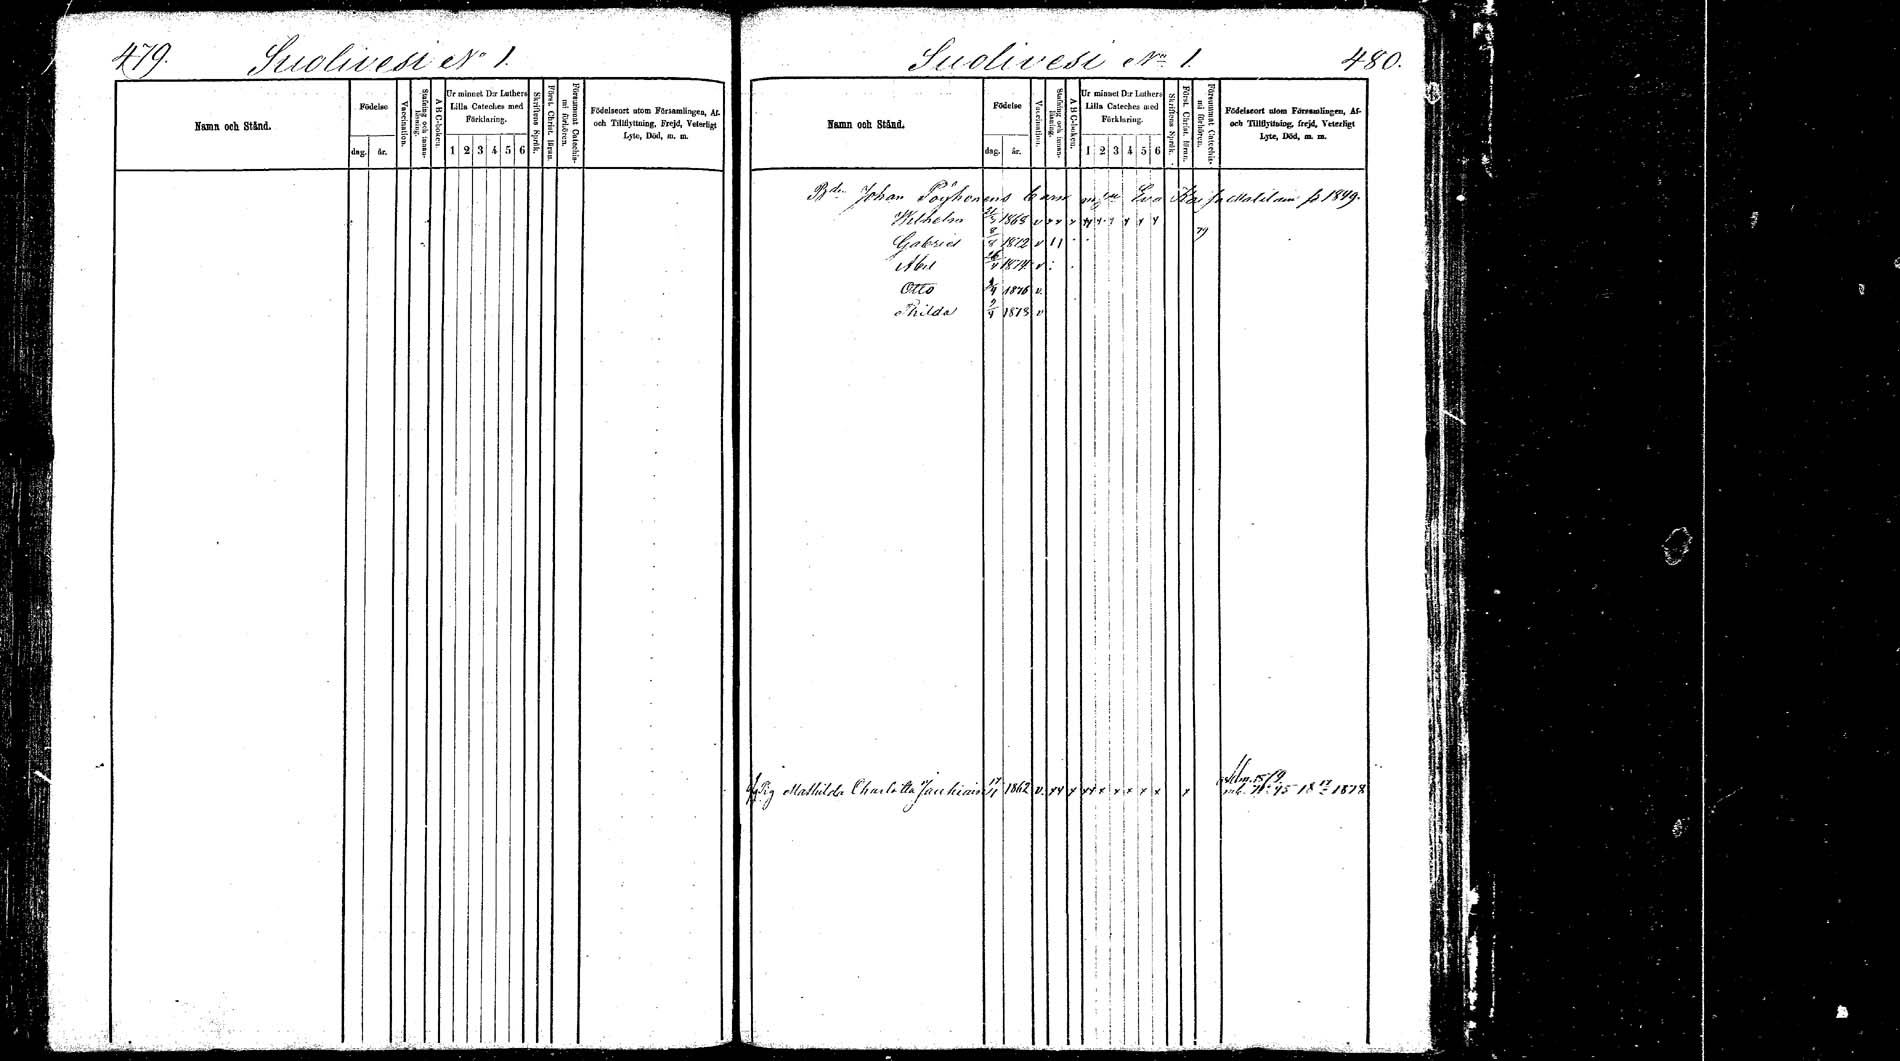 479. Suolivesi No 1.
Namn och Stånd.
Födelse
dag.
år.
Vaccination.
Stafning och innan-
läsning.
A B C-boken.
Ur minnet D:r Luthers
Lilla Cateches med
Förklaring.
1 2 3 4 5 6
Skriftens Språk.
Först. Christ. läran.
Försummat Catechis-
mi förhören.
Födelseort utom Församlingen, Af-
och Tillflyttning, Frejd, Veterligt
Lyte, Död, m. m.
Suolivesi No 1. 480.
Namn och Stånd.
Födelse
dag.
år.
Vaccination.
Stafning och innan-
läsning.
A B C-boken.
Ur minnet D:r Luthers
Lilla Cateches med
Förklaring.
1 2 3 4 5 6
Skriftens Språk.
Först. Christ. läran.
Försummat Catechis-
mi förhören.
Födelseort utom Församlingen, Af-
och Tillflyttning, frejd, Veterligt
Lyte, Död, m. m.
Bdn Johan Pöyhönens barn m Eva 1849.
Wilhelm 1868 v x x x
79
Gabriel 1872 v 11
Abel 1874 v
Otto 1876 v.
Thilda 9/4 1878 v
Pig Mathilda Charlotta 17/1 1862 v. x x x x x x x x x x 1878